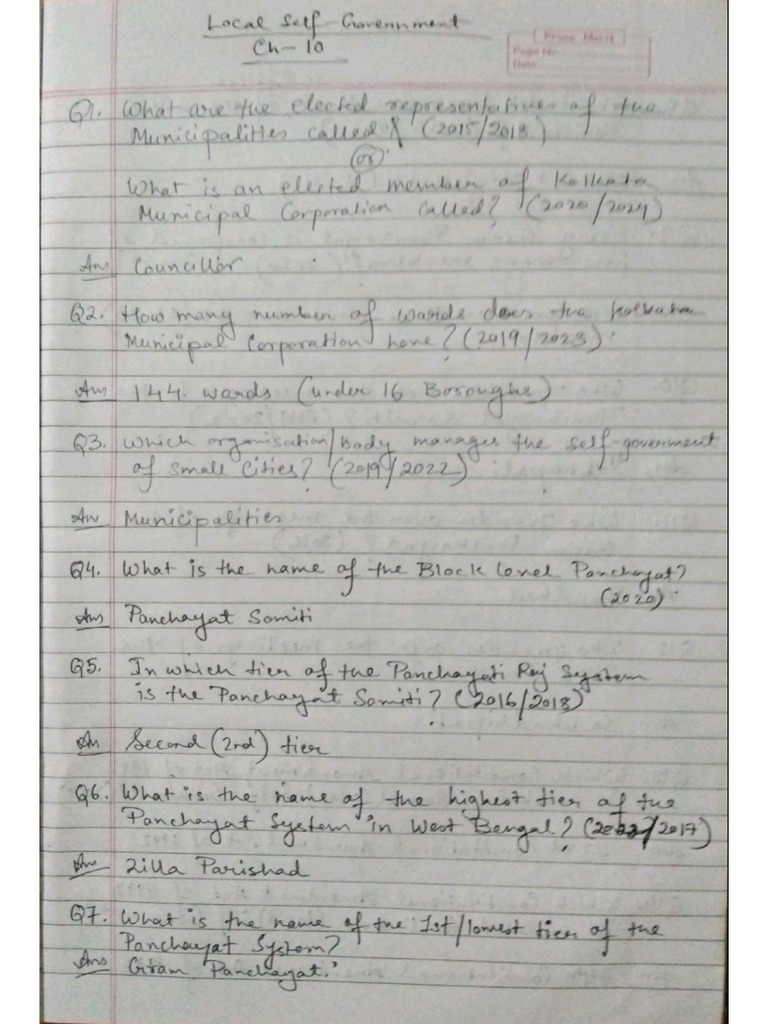 Local Self-Government
Ch-10
Prime Merit
Page No.
Date
Q1. What are the elected representatives of the
Municipalities called? (2015/2018)
(or)
What is an elected member of Kolkata
Municipal Corporation called? (2020/2024)
Ans Councillor
Q2. How many number of wards does the Kolkata
Municipal Corporation have? (2019/2023)
Ans 144 wards (under 16 Boroughs)
Q3. Which organisation/body manages the self-goverment
of small Cities? (2019/2022)
Ans Municipalities
Q4. What is the name of the Block level Panchayat?
(2020)
Ans Panchayat Somiti
Q5. In which tier of the Panchayati Raj System
is the Panchayat Somiti? (2016/2018)
An Second (2nd) tier
Q6. What is the name of the highest tier of the
Panchayat System in West Bengal? (2022/2017)
An Zilla Parishad
Q7. What is the name of the 1st/lowest tier of the
Panchayat System?
Ans Gram Panchayat.